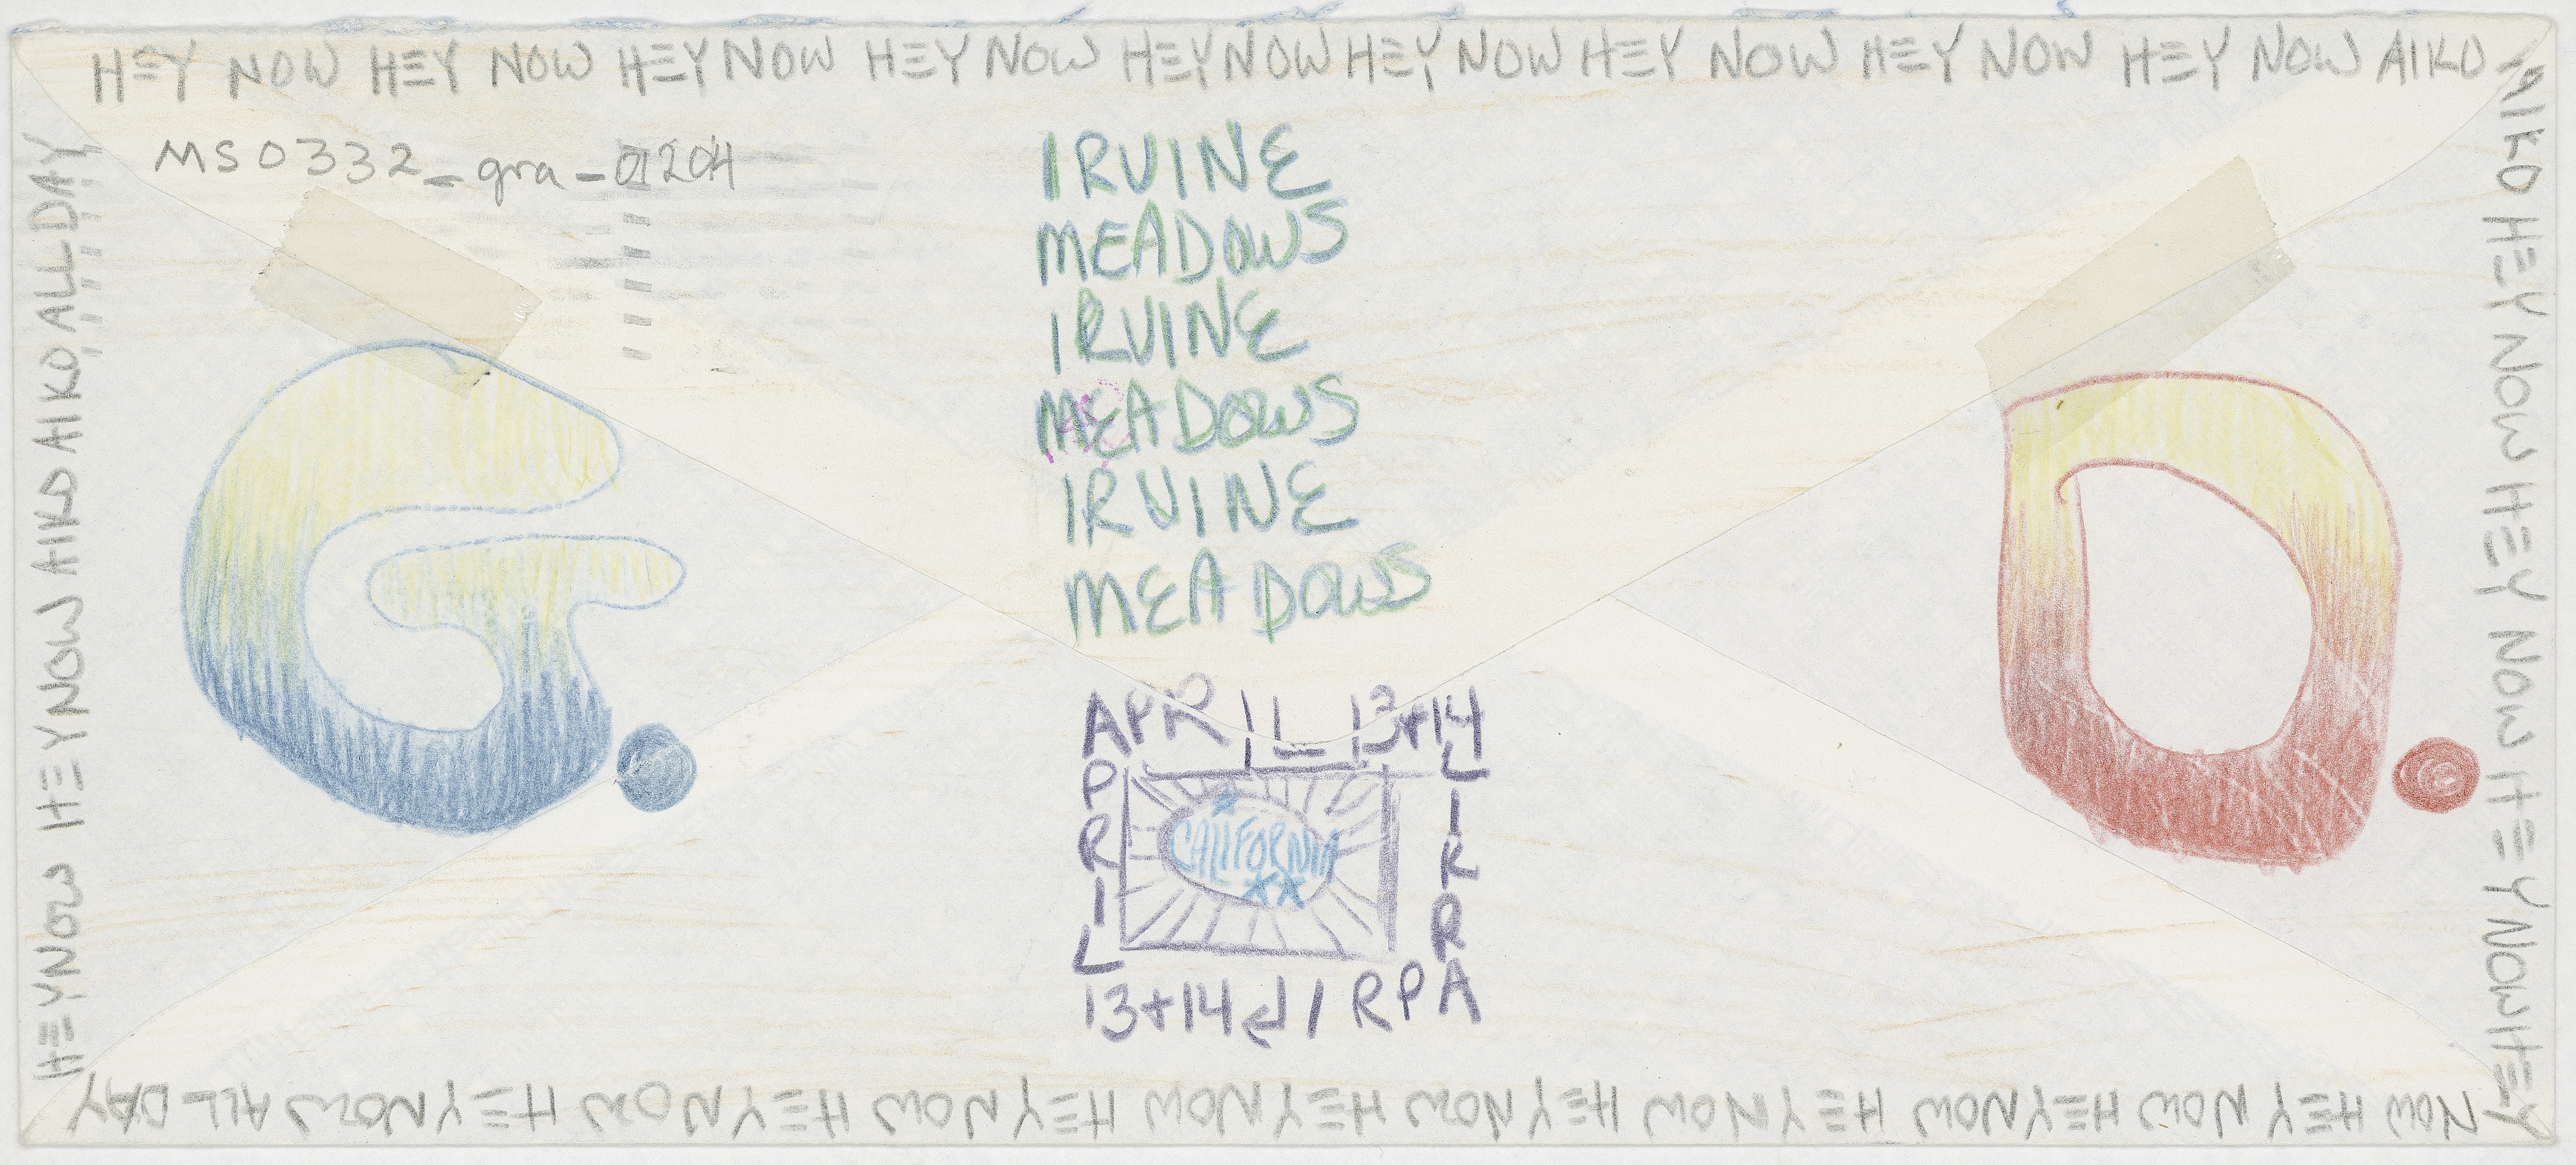 HEY NOW HEY NOW HEY NOW HEY NOW HEY NOW HEY NOW HEY NOW HEY NOW HEY NOW AIKO
AIKO HEY NOW HEY NOW HEY NOW HEY
NOW HEY NOW HEY NOW HEY NOW HEY NOW HEY NOW HEY NOW HEY NOW HEY NOW ALL DAY
HEY NOW HEY NOW AIKO AIKO ALL DAY
MS0332_gra_01204
IRVINE
MEADOWS
IRVINE
MEADOWS
IRVINE
MEADOWS
G.
D.
APRIL 13+14
APRIL
CALIFORNIA
LIRPA
13+14 LIRPA